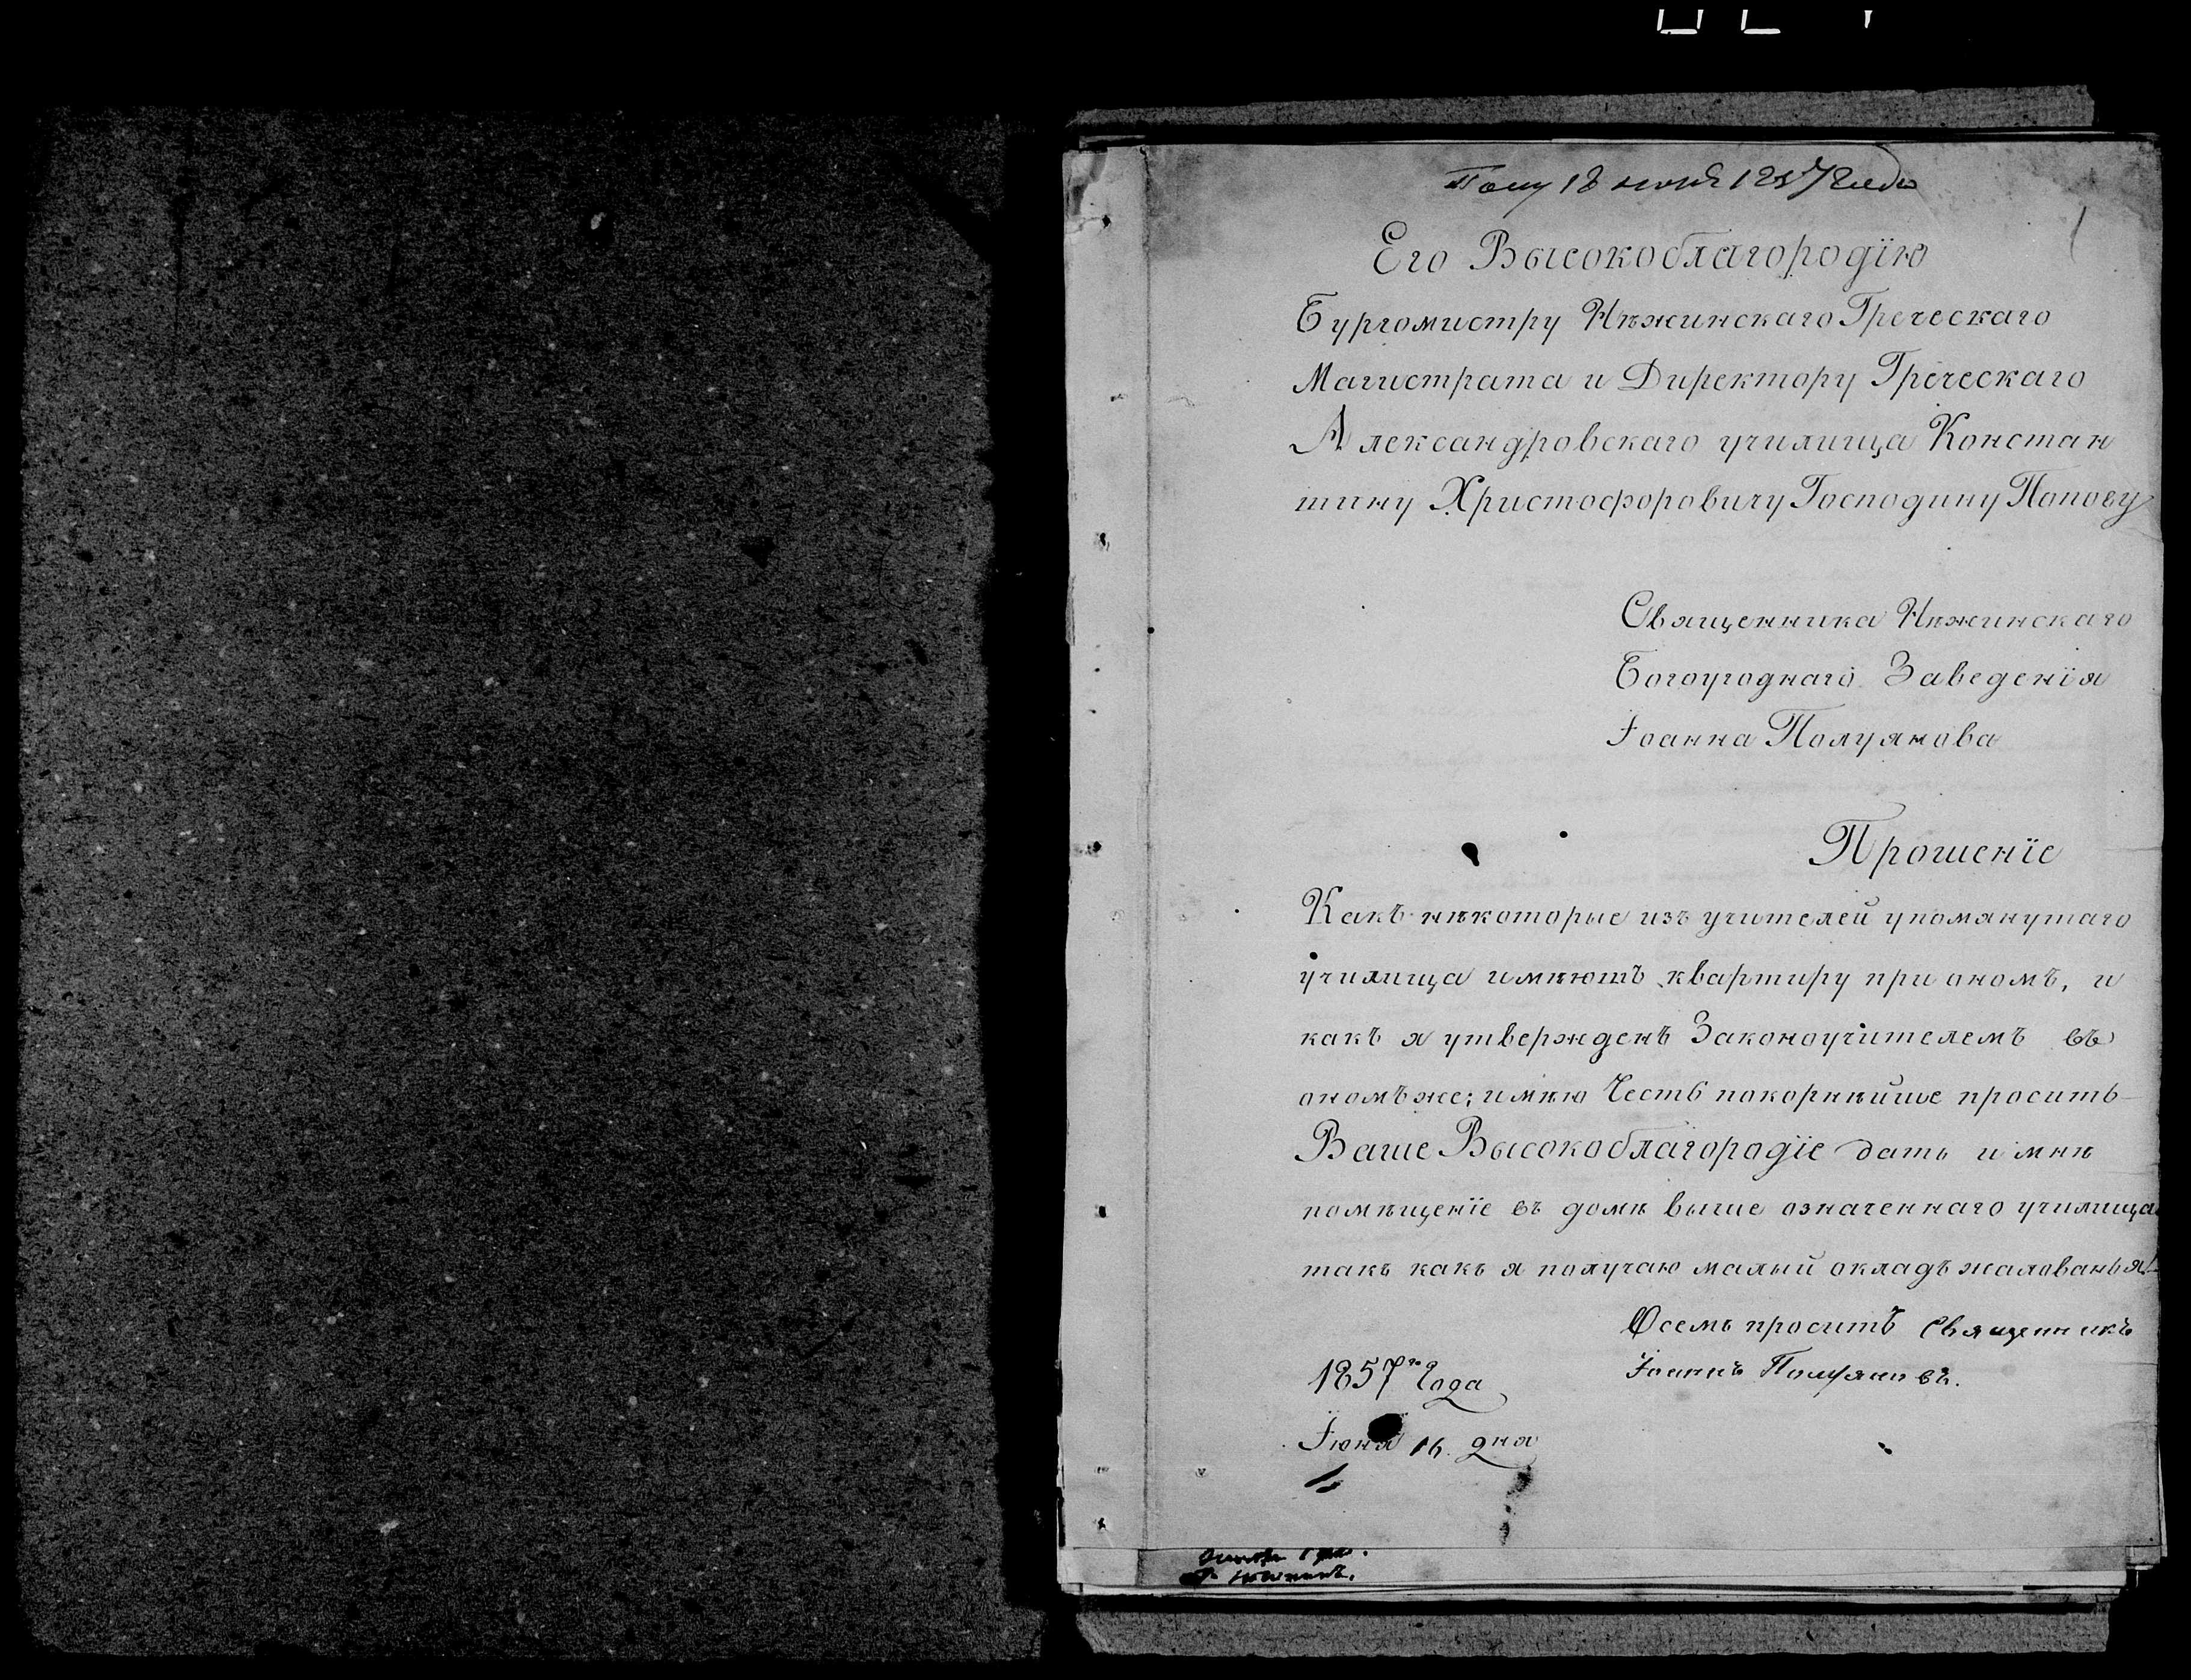 Пол. 18 июня 1857 года
1
Его Высокоблагородїю
Бургомистру Нѣжинскаго Греческаго
Магистрата и Директору Греческаго
Александровскаго училища Констан
тину Христофоровичу Господину Попову
Священника Нѣжинскаго
Богоугоднаго Заведенїя
Іоанна Полуянова
Прошенїе
Какъ нѣкоторые изъ учителей упомянутаго
училища имѣютъ квартиру при ономъ, и
какъ я утвержденъ Законоучителемъ въ
ономъ же; имѣю Честь покорнѣйше просить
Ваше Высокоблагородїе дать и мнѣ
помѣщенїе въ домѣ выше означеннаго училища
такъ какъ я получаю малый окладъ жалованья.
О семъ проситъ Священникъ
Іоаннъ Полуяновъ.
1857го Года
Іюня 16. дня